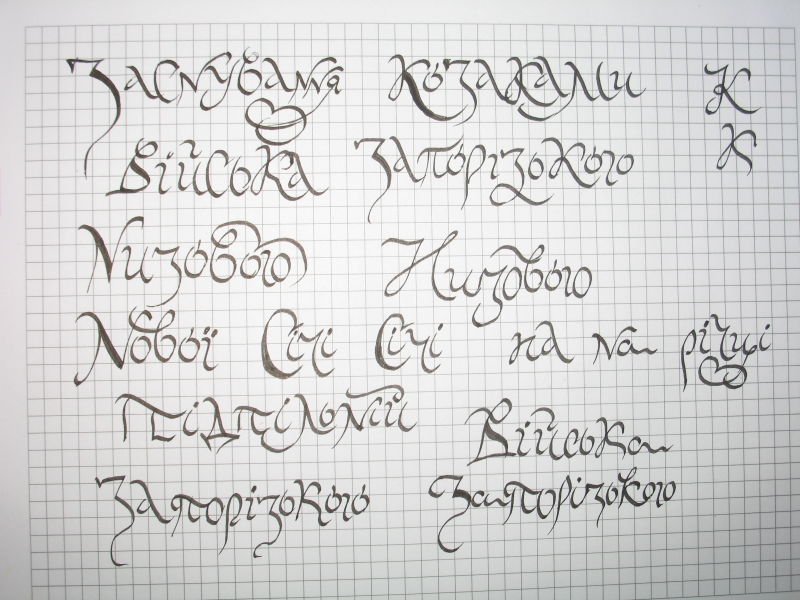 Заснуваня козаками К
Війська Запорізького К
Низового Низового
Нової Січі Січі на на річці
Підпільній Війська
Запорізького Запорізького